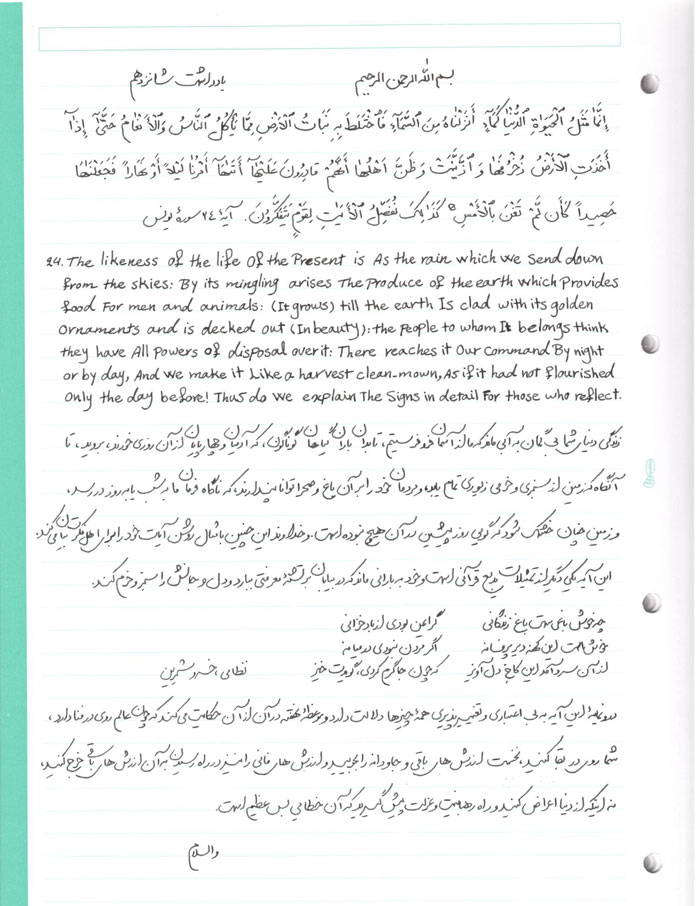 بسم الله الرحمن الرحیم یادداشت شانزدهم
إِنَّمَا مَثَلُ ٱلْحَيَوٰةِ ٱلدُّنْيَا كَمَآءٍ أَنزَلْنَاهُ مِنَ ٱلسَّمَآءِ فَٱخْتَلَطَ بِهِ نَبَاتُ ٱلْأَرْضِ مِمَّا يَأْكُلُ ٱلنَّاسُ وَٱلْأَنْعَامُ حَتَّىٰٓ إِذَآ
أَخَذَتِ ٱلْأَرْضُ زُخْرُفَهَا وَٱزَّيَّنَتْ وَظَنَّ أَهْلُهَا أَنَّهُمْ قَادِرُونَ عَلَيْهَآ أَتَىٰهَآ أَمْرُنَا لَيْلًا أَوْ نَهَاراً فَجَعَلْنَٰهَا
حَصِيداً كَأَن لَّمْ تَغْنَ بِٱلْأَمْسِ كَذَٰلِكَ نُفَصِّلُ ٱلْأَيَٰتِ لِقَوْمٍ يَتَفَكَّرُونَ. آیهٔ ۲۴ سورهٔ یونس
24. The likeness of the life of the Present is As the rain which we send down
from the skies: By its mingling arises The Produce of the earth which Provides
food For men and animals: (It grows) till the earth Is clad with its golden
Ornaments and is decked out (In beauty): the People to whom It belongs think
they have All Powers of disposal over it: There reaches it Our Command By night
or by day, And We make it Like a harvest clean-mown, As if it had not flourished
Only the day before! Thus do We explain The Signs in detail For those who reflect.
زندگی دنیای شما بی گمان به آبی ماند که ما از آسمان فرو فرستیم، تا بدان باران گیاهان گوناگون، که آدمیان و چهارپایان از آن روزی خورند، بروید، تا
آنگاه که زمین از سبزی و خرمی زیوری تمام یابد و مردمان خود را بر آن باغ و صحرا توانا پندارند، که ناگاه فرمان ما به شب یا به روز در رسد،
و زمین چنان خشک شود که گویی روز پیشین در آن هیچ نبوده است. و خداوند این چنین با مثال روشن آیات خود را برای اهل فکرت بیان می کند.
این آیه یکی دیگر از تمثیلات بدیع قرآنی است و خود به بارانی ماند که در بیابان بر تشنهٔ معرفتی ببارد و دل و جانش را سبز و خرم کند.
چه خوش باغی ست باغ زندگانی گر ایمن بودی از باد خزانی
خوش است این کهنه دیر پرفسانه اگر مردن نبودی در میانه
از آن سرد آمد این کاخ دل آویز که چون جا گرم کردی، گویدت خیز نظامی، خسرو شیرین
درونمایهٔ این آیه به بی اعتباری و تغییر پذیری همهٔ چیزها دلالت دارد و موعظهٔ نهفته در آن از آن حکایت می کند که چون عالم روی در فنا دارد،
شما روی در بقا کنید، نخست ارزش های باقی و جاودانه را بجویید و ارزش های فانی را نیز در راه رسیدن به آن ارزش های باقی خرج کنید،
نه اینکه از دنیا اعراض کنید و راه رهبانیت و عزلت پیش گیرید که آن خطایی بس عظیم است.
والسلام